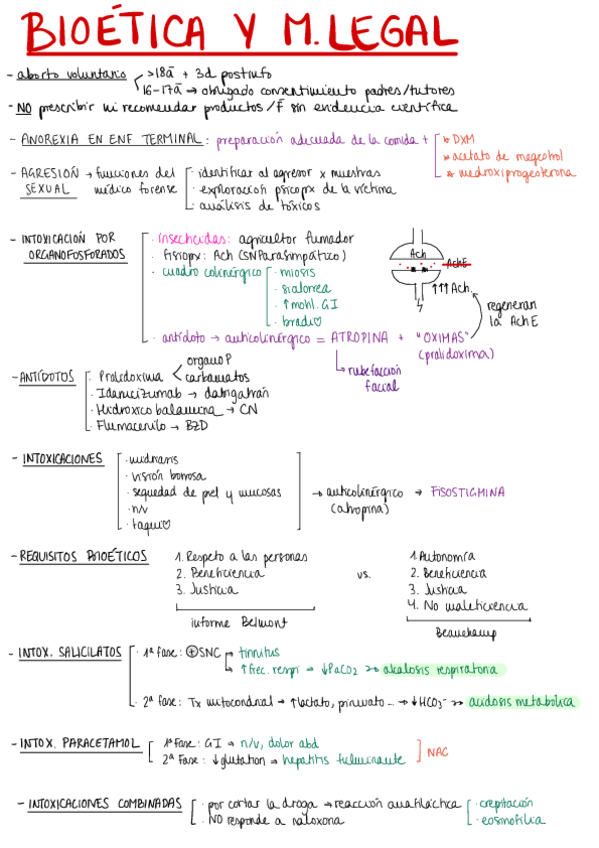 BIOÉTICA Y M. LEGAL
- aborto voluntario < >18ā + 3d postinfo
16-17ā → obligado consentimiento padres/tutores
- NO prescribir ni recomendar productos/F sin evidencia científica
- ANOREXIA EN ENF TERMINAL: preparación adecuada de la comida + DXM
acetato de megestrol
medroxiprogesterona
- AGRESIÓN SEXUAL → funciones del médico forense
· identificar al agresor x muestras
· exploración psicopx de la víctima
· análisis de tóxicos
- INTOXICACIÓN POR ORGANOFOSFORADOS
· insecticidas: agricultor fumador
· Fisiopx: Ach (SNParasimpático)
· cuadro colinérgico
· miosis
· sialorrea
· ↑ motil. GI
· bradi♡
Ach
AchE
↑↑↑ Ach.
regeneran la AchE
· antídoto → anticolinérgico = ATROPINA + "OXIMAS"
(pralidoxima)
rubefacción facial
- ANTÍDOTOS
· Pralidoxima < organo P
carbamatos
· Idarucizumab → dabigatrán
· Hidroxicobalamina → CN
· Flumacenilo → BZD
- INTOXICACIONES
· midriasis
· visión borrosa
· sequedad de piel y mucosas
· n/v
· taqui♡
→ anticolinérgico (atropina) → FISOSTIGMINA
- REQUISITOS BIOÉTICOS
1. Respeto a las personas
2. Beneficiencia
3. Justicia
informe Belmont
vs.
1. Autonomía
2. Beneficiencia
3. Justicia
4. No maleficiencia
Beauchamp
- INTOX. SALICILATOS
· 1ª fase: ⊕SNC → tinnitus
↑ frec. respi → ↓PaCO2 → alcalosis respiratoria
· 2ª fase: Tx mitocondrial → ↑ lactato, piruvato... → ↓HCO3⁻ → acidosis metabólica
- INTOX. PARACETAMOL
1ª Fase: GI → n/v, dolor abd
2ª Fase: ↓glutation → hepatitis fulminante
NAC
- INTOXICACIONES COMBINADAS
· por cortar la droga → reacción anafiláctica
· NO responde a naloxona
· crepitación
· eosinofilia